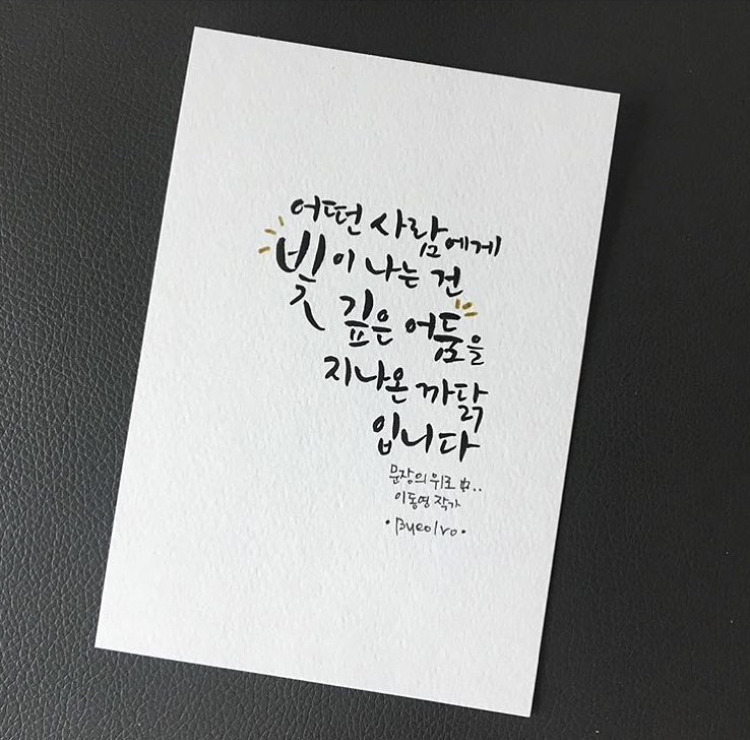 어떤 사람에게
빛이 나는 건
깊은 어둠을
지나온 까닭
입니다
문장의 위로 中..
이동영 작가
•Byeolro•